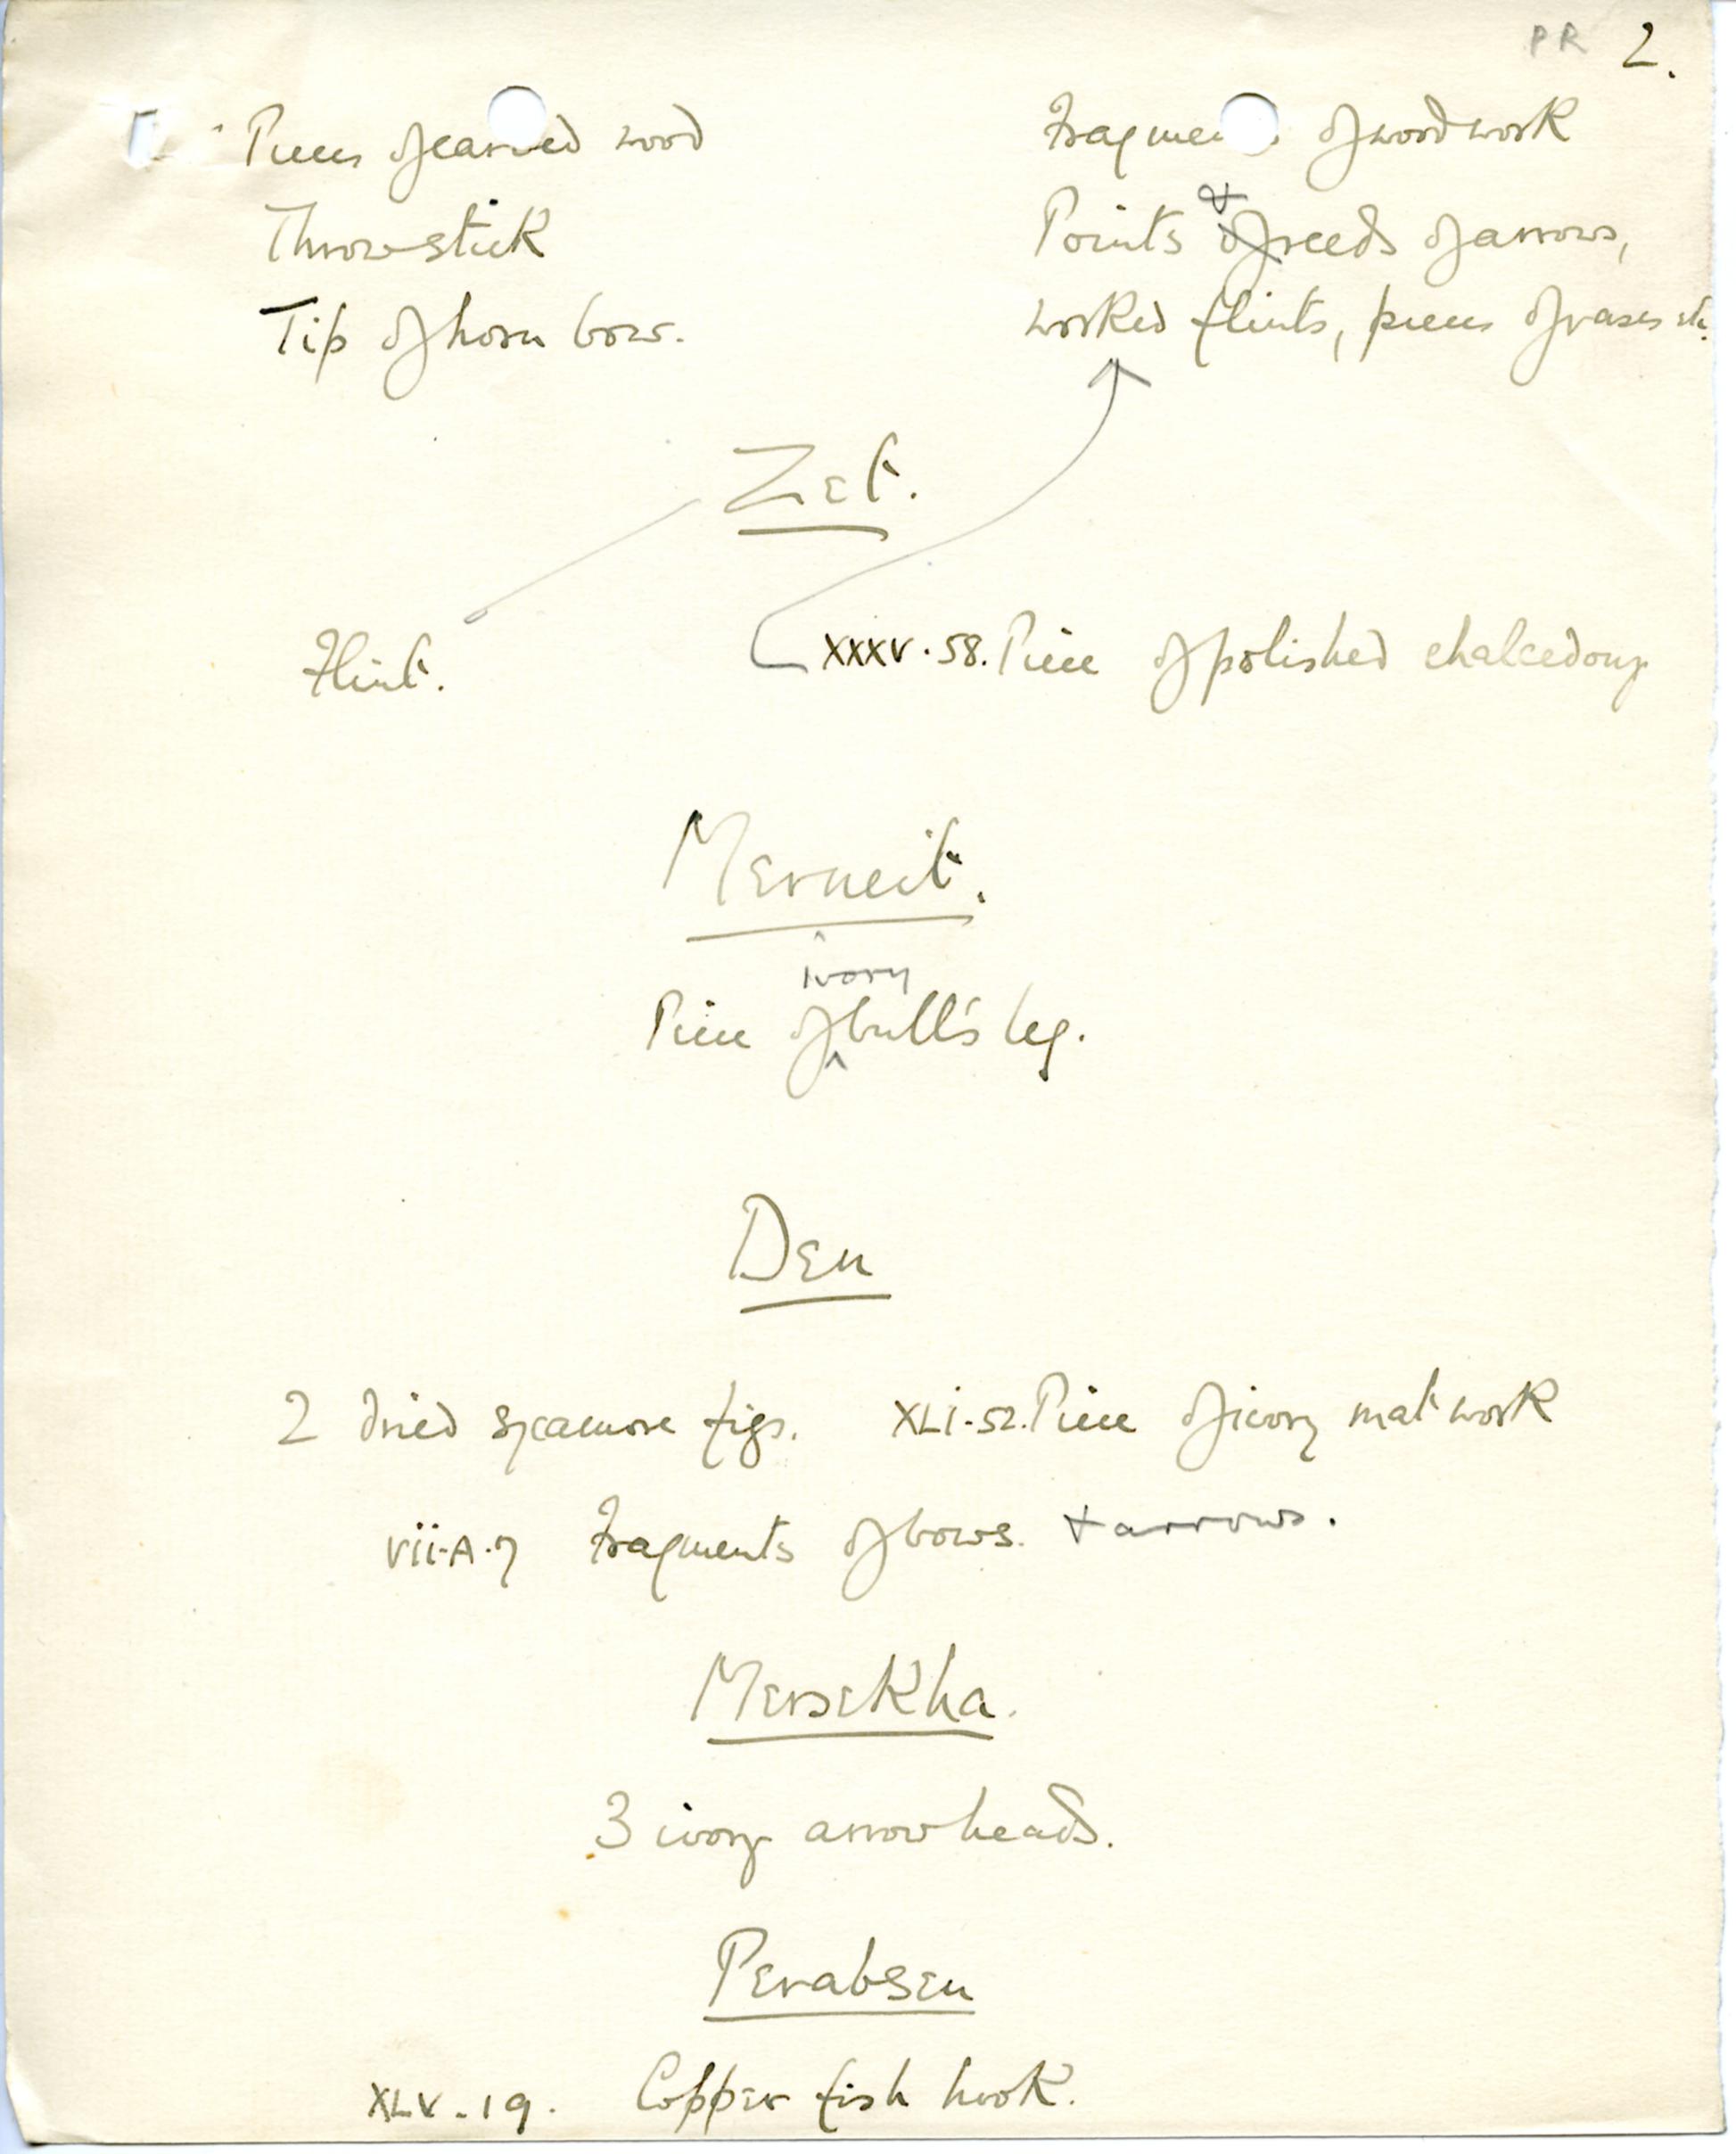 PR 2.
Pieces of carved wood
Throwstick
Tip of horn bow.
Fragments of woodwork
Points & of reeds of arrows,
worked flints, pieces of vases etc.
Zet.
Flint.
XXXV.58. Piece of polished chalcedony
Merneit.
ivory
Piece of bull's leg.
Den
2 dried sycamore figs. XLI-52. Piece of ivory mat work
vii-A.7 Fragments of bows. & arrows.
Mersekha.
3 ivory arrowheads.
Perabsen
XLV-19. Copper fish hook.